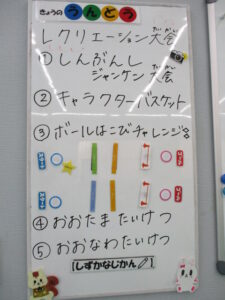 きょうの うんどう
レクリエーション大会
①しんぶんし
ジャンケン大会
②キャラクターバスケット
③ボールはこびチャレンジ
④おおたまたいけつ
⑤おおなわたいけつ
しずかなじかん